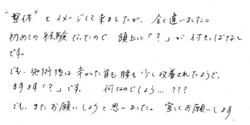 "整体"とイメージして来ましたが、全く違いました。
初めての経験だったので 頭上に「?」が 付きっぱなし
です。
でも、施術後は 辛かった首も腰も少し改善されたようで、
ますます「?」です。 何なのでしょう…???
でも、またお願いしようと思いました。宜しくお願いします